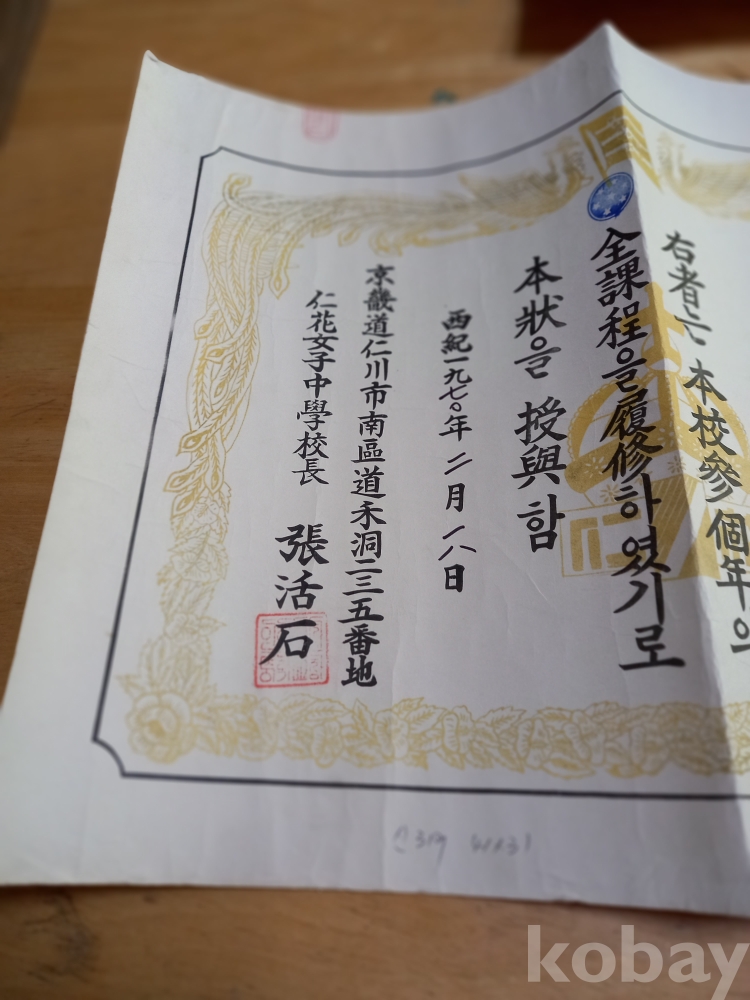 右者는 本校參個年의
全課程을 履修하였기로
本狀을 授與함
西紀一九七〇年 二月 一八日
京畿道仁川市南區道禾洞二三五番地
仁花女子中學校長 張活石
kobay